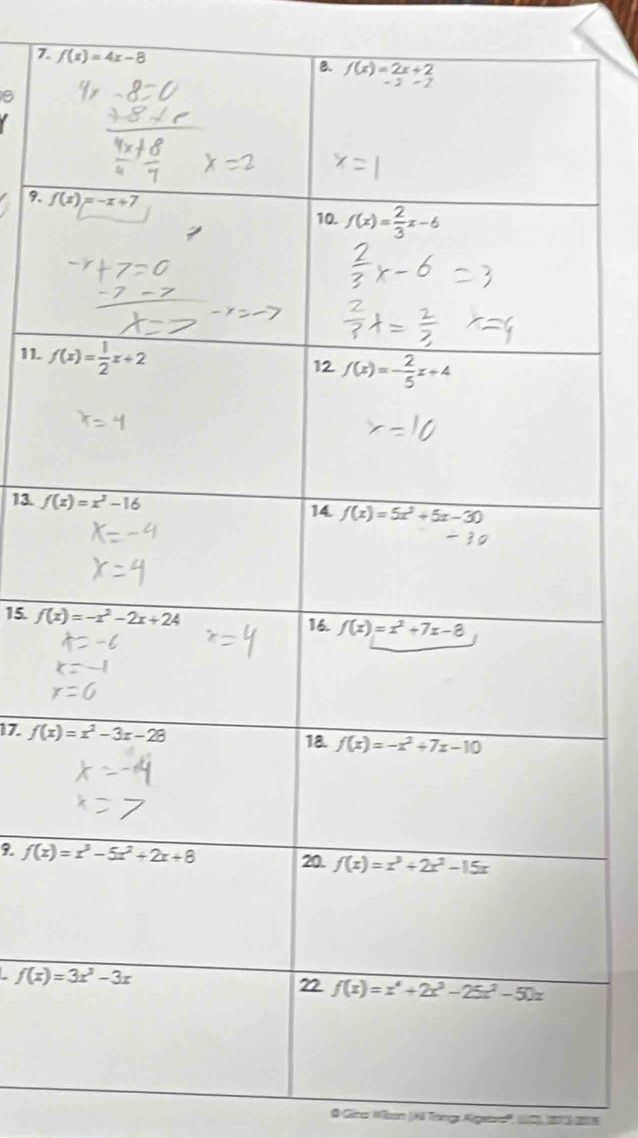 7. f(x) = 4x - 8
4x - 8 = 0
+8 +
4x + 8
4 4
x = 2
8. f(x) = 2x + 2
-2 -2
x = 1
9. f(x) = -x + 7
-x + 7 = 0
-7 -7
x = 7
-x = -7
10. f(x) = 2/3 x - 6
2/3 x - 6 = 3
2/3 x = 2/3
x = 9
11. f(x) = 1/2 x + 2
x = 4
12. f(x) = -2/5 x + 4
x = 10
13. f(x) = x² - 16
x = -4
x = 4
14. f(x) = 5x² + 5x - 30
- 30
15. f(x) = -x² - 2x + 24
x = -6
x = 4
x = -1
x = 6
16. f(x) = x² + 7x - 8
17. f(x) = x² - 3x - 28
x = -4
x = 7
18. f(x) = -x² + 7x - 10
9. f(x) = x³ - 5x² + 2x + 8
20. f(x) = x³ + 2x² - 15x
. f(x) = 3x³ - 3x
22. f(x) = x⁴ + 2x³ - 25x² - 50x
© Gina Wilson (All Things Algebra®, LLC),